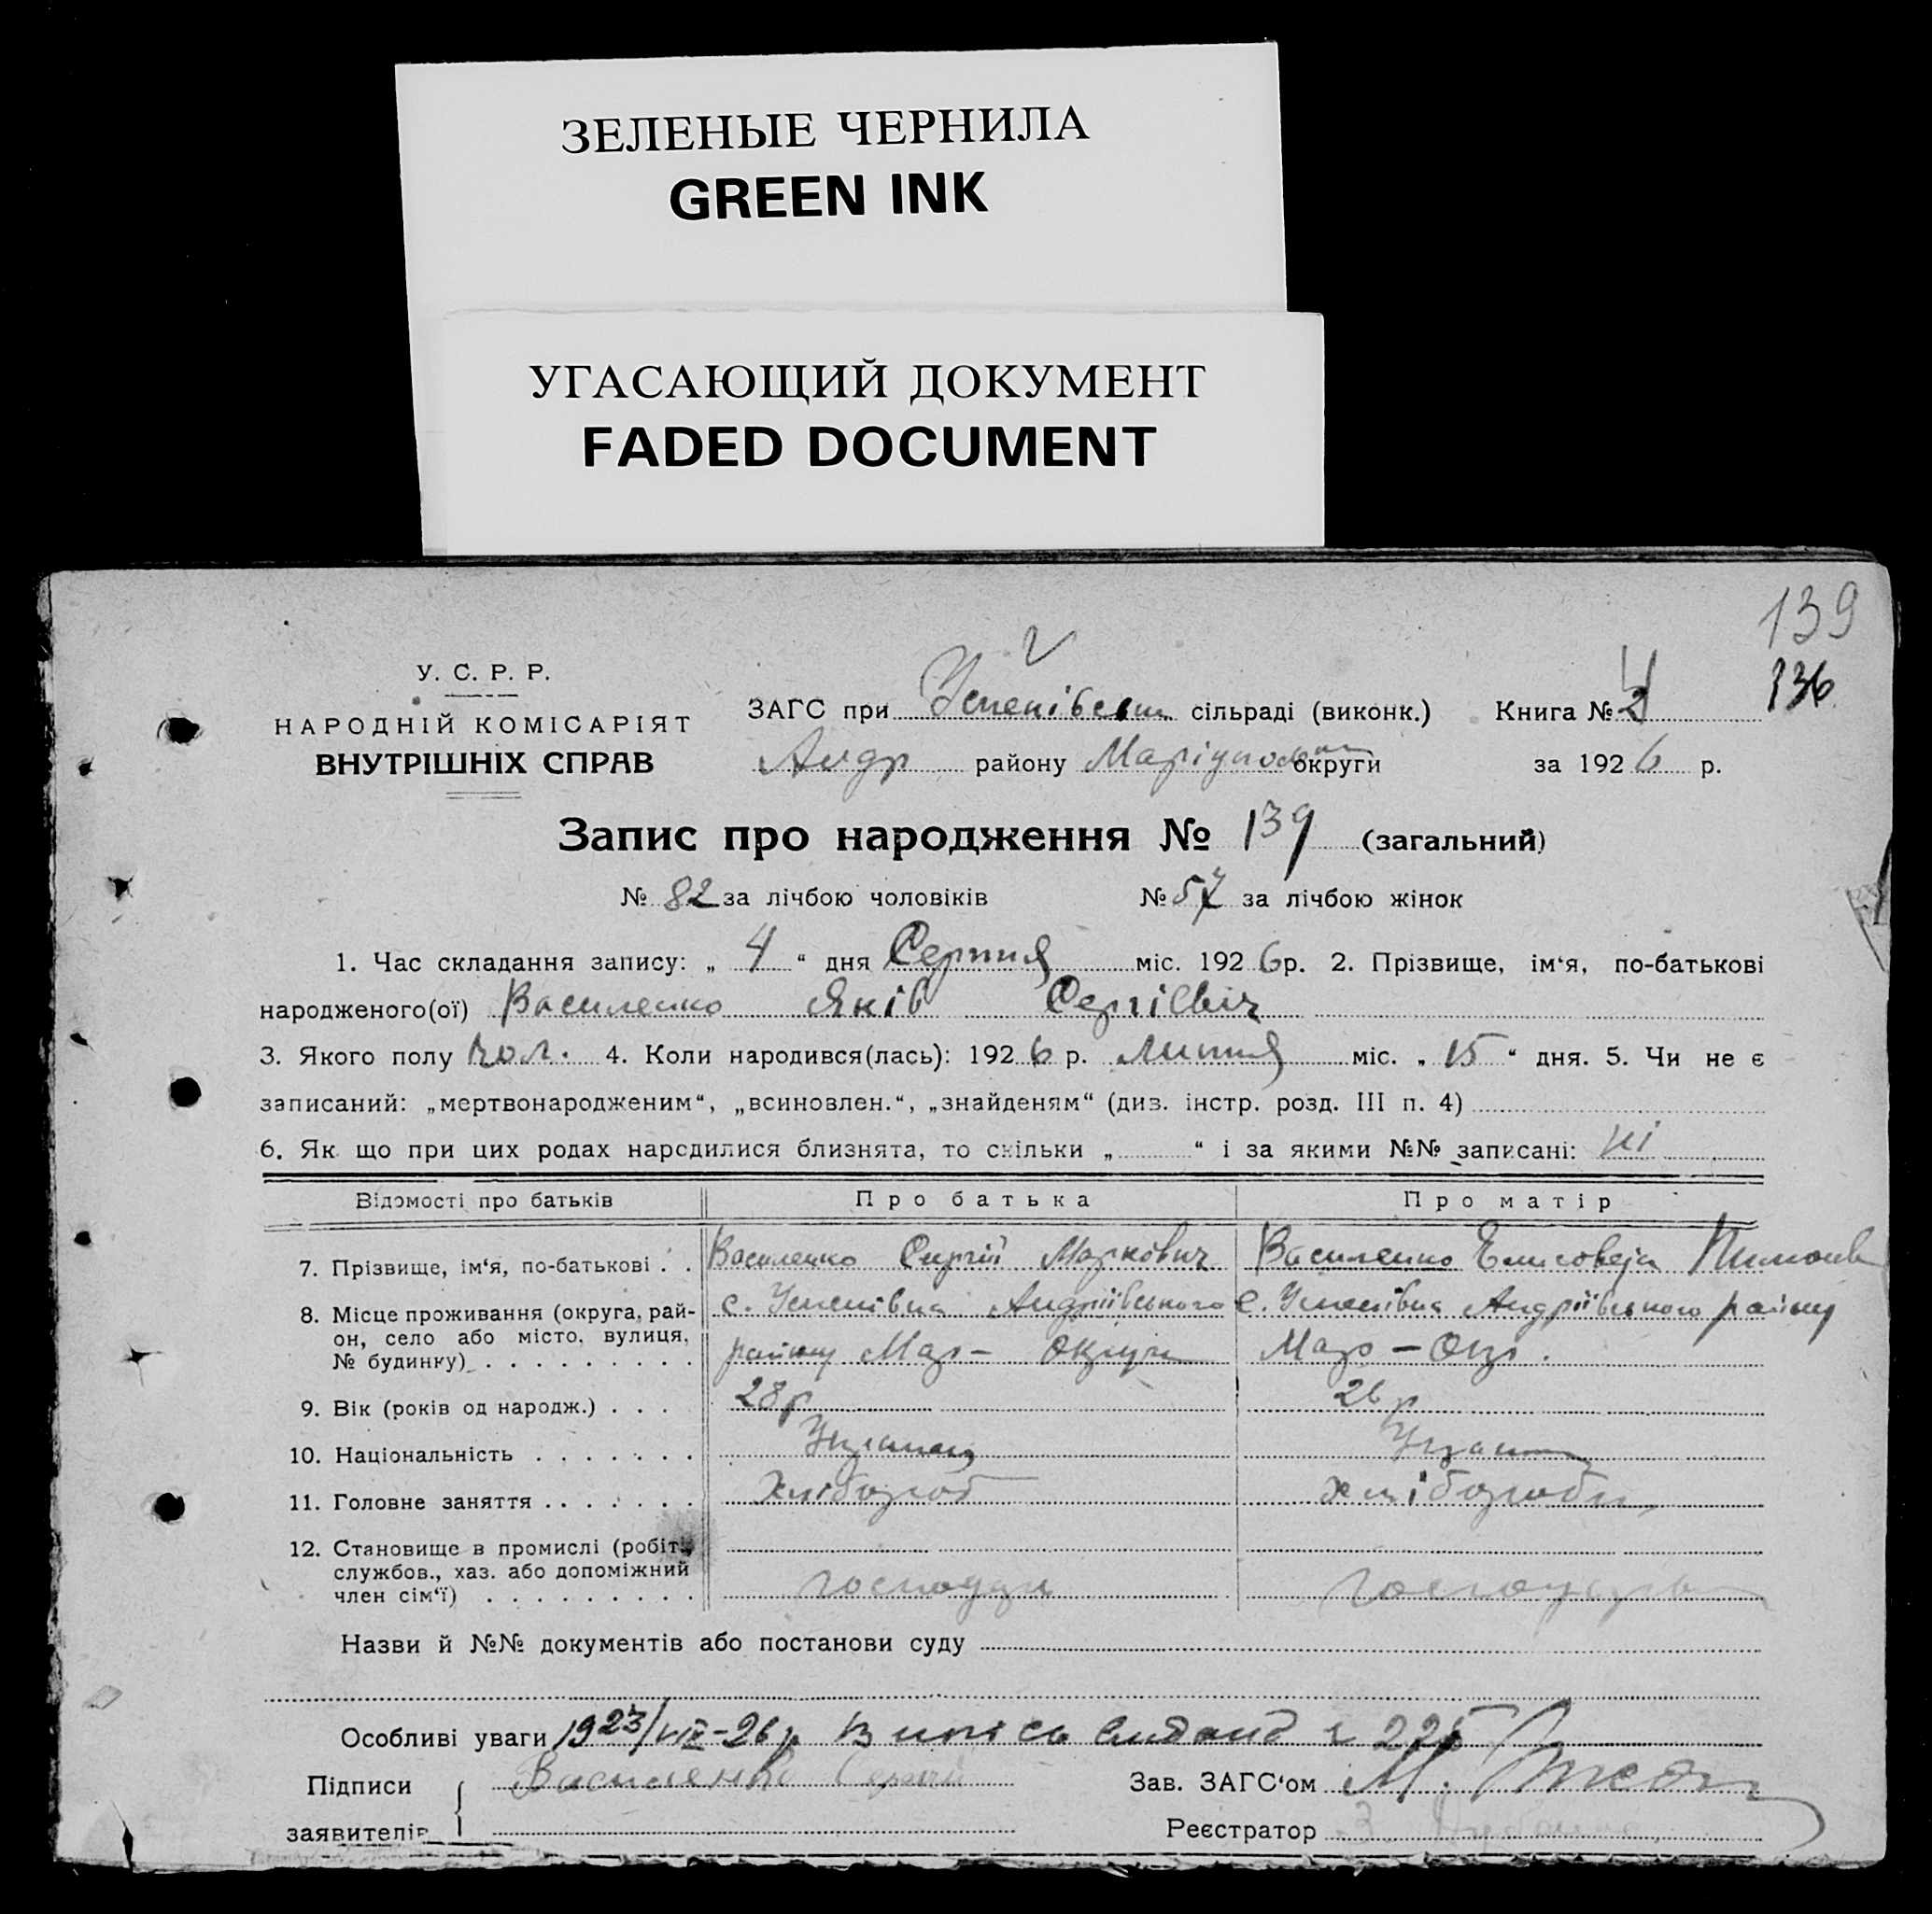 ЗЕЛЕНЫЕ ЧЕРНИЛА
GREEN INK
УГАСАЮЩИЙ ДОКУМЕНТ
FADED DOCUMENT
139
136
У. С. Р. Р.
НАРОДНІЙ КОМІСАРІЯТ
ВНУТРІШНІХ СПРАВ
ЗАГС при сільраді (виконк.) Книга №
Андр району округи за 1926 р.
Запис про народження № 139 (загальний)
№ 82 за лічбою чоловіків № 57 за лічбою жінок
1. Час складання запису: „ 4 “ дня Серпня міс. 1926 р. 2. Прізвище, ім‘я, по-батькові
народженого(ої) Василенко Яків Сергієвич
3. Якого полу чол. 4. Коли народився(лась): 1926 р. Липня міс. „ 15 “ дня. 5. Чи не є
записаний: „мертвонародженим“, „всиновлен.“, „знайденям“ (див. інстр. розд. III п. 4)
6. Як що при цих родах народилися близнята, то скільки „ “ і за якими №№ записані: ні
Відомості про батьків Про батька Про матір
7. Прізвище, ім‘я, по-батькові . . Василенко Сергій Маркович Василенко
8. Місце проживання (округа, рай- с. Успенівка Андріївського с. Успенівка Андріївського району
он, село або місто, вулиця, району Мар– Округи Мар – Окр.
№ будинку) . . . . . . . . .
9. Вік (років од народж.) . . . 28 р 26 р
10. Національність . . . . . . .
11. Головне заняття . . . . . . . Хлібороб
12. Становище в промислі (робіт.,
службов., хаз. або допоміжний
член сім‘ї) . . . . . . . . . господар
Назви й №№ документів або постанови суду
Особливі уваги 1923/VIII–26 р
Підписи Василенко Зав. ЗАГС‘ом М.
заявителів Реєстратор